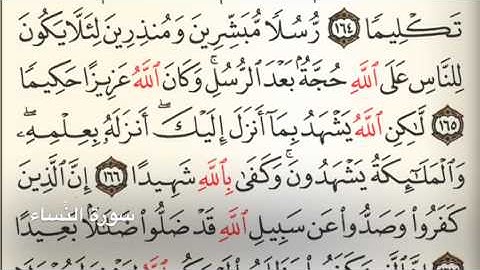 تَكْلِيمًا ١٦٤ رُّسُلًا مُّبَشِّرِينَ وَمُنذِرِينَ لِئَلَّا يَكُونَ
لِلنَّاسِ عَلَى ٱللَّهِ حُجَّةٌۢ بَعْدَ ٱلرُّسُلِۚ وَكَانَ ٱللَّهُ عَزِيزًا حَكِيمًا
١٦٥ لَّٰكِنِ ٱللَّهُ يَشْهَدُ بِمَآ أَنزَلَ إِلَيْكَۖ أَنزَلَهُۥ بِعِلْمِهِۦۖ
وَٱلْمَلَٰٓئِكَةُ يَشْهَدُونَۚ وَكَفَىٰ بِٱللَّهِ شَهِيدًا ١٦٦ إِنَّ ٱلَّذِينَ
كَفَرُوا۟ وَصَدُّوا۟ عَن سَبِيلِ ٱللَّهِ قَدْ ضَلُّوا۟ ضَلَٰلًۢا بَعِيدًا
سورة النساء